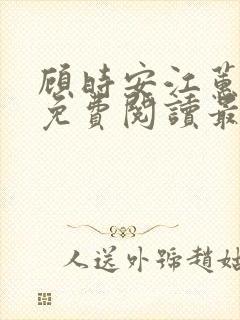 顾時安江蕙
免費閱讀最
人送外號趙姑